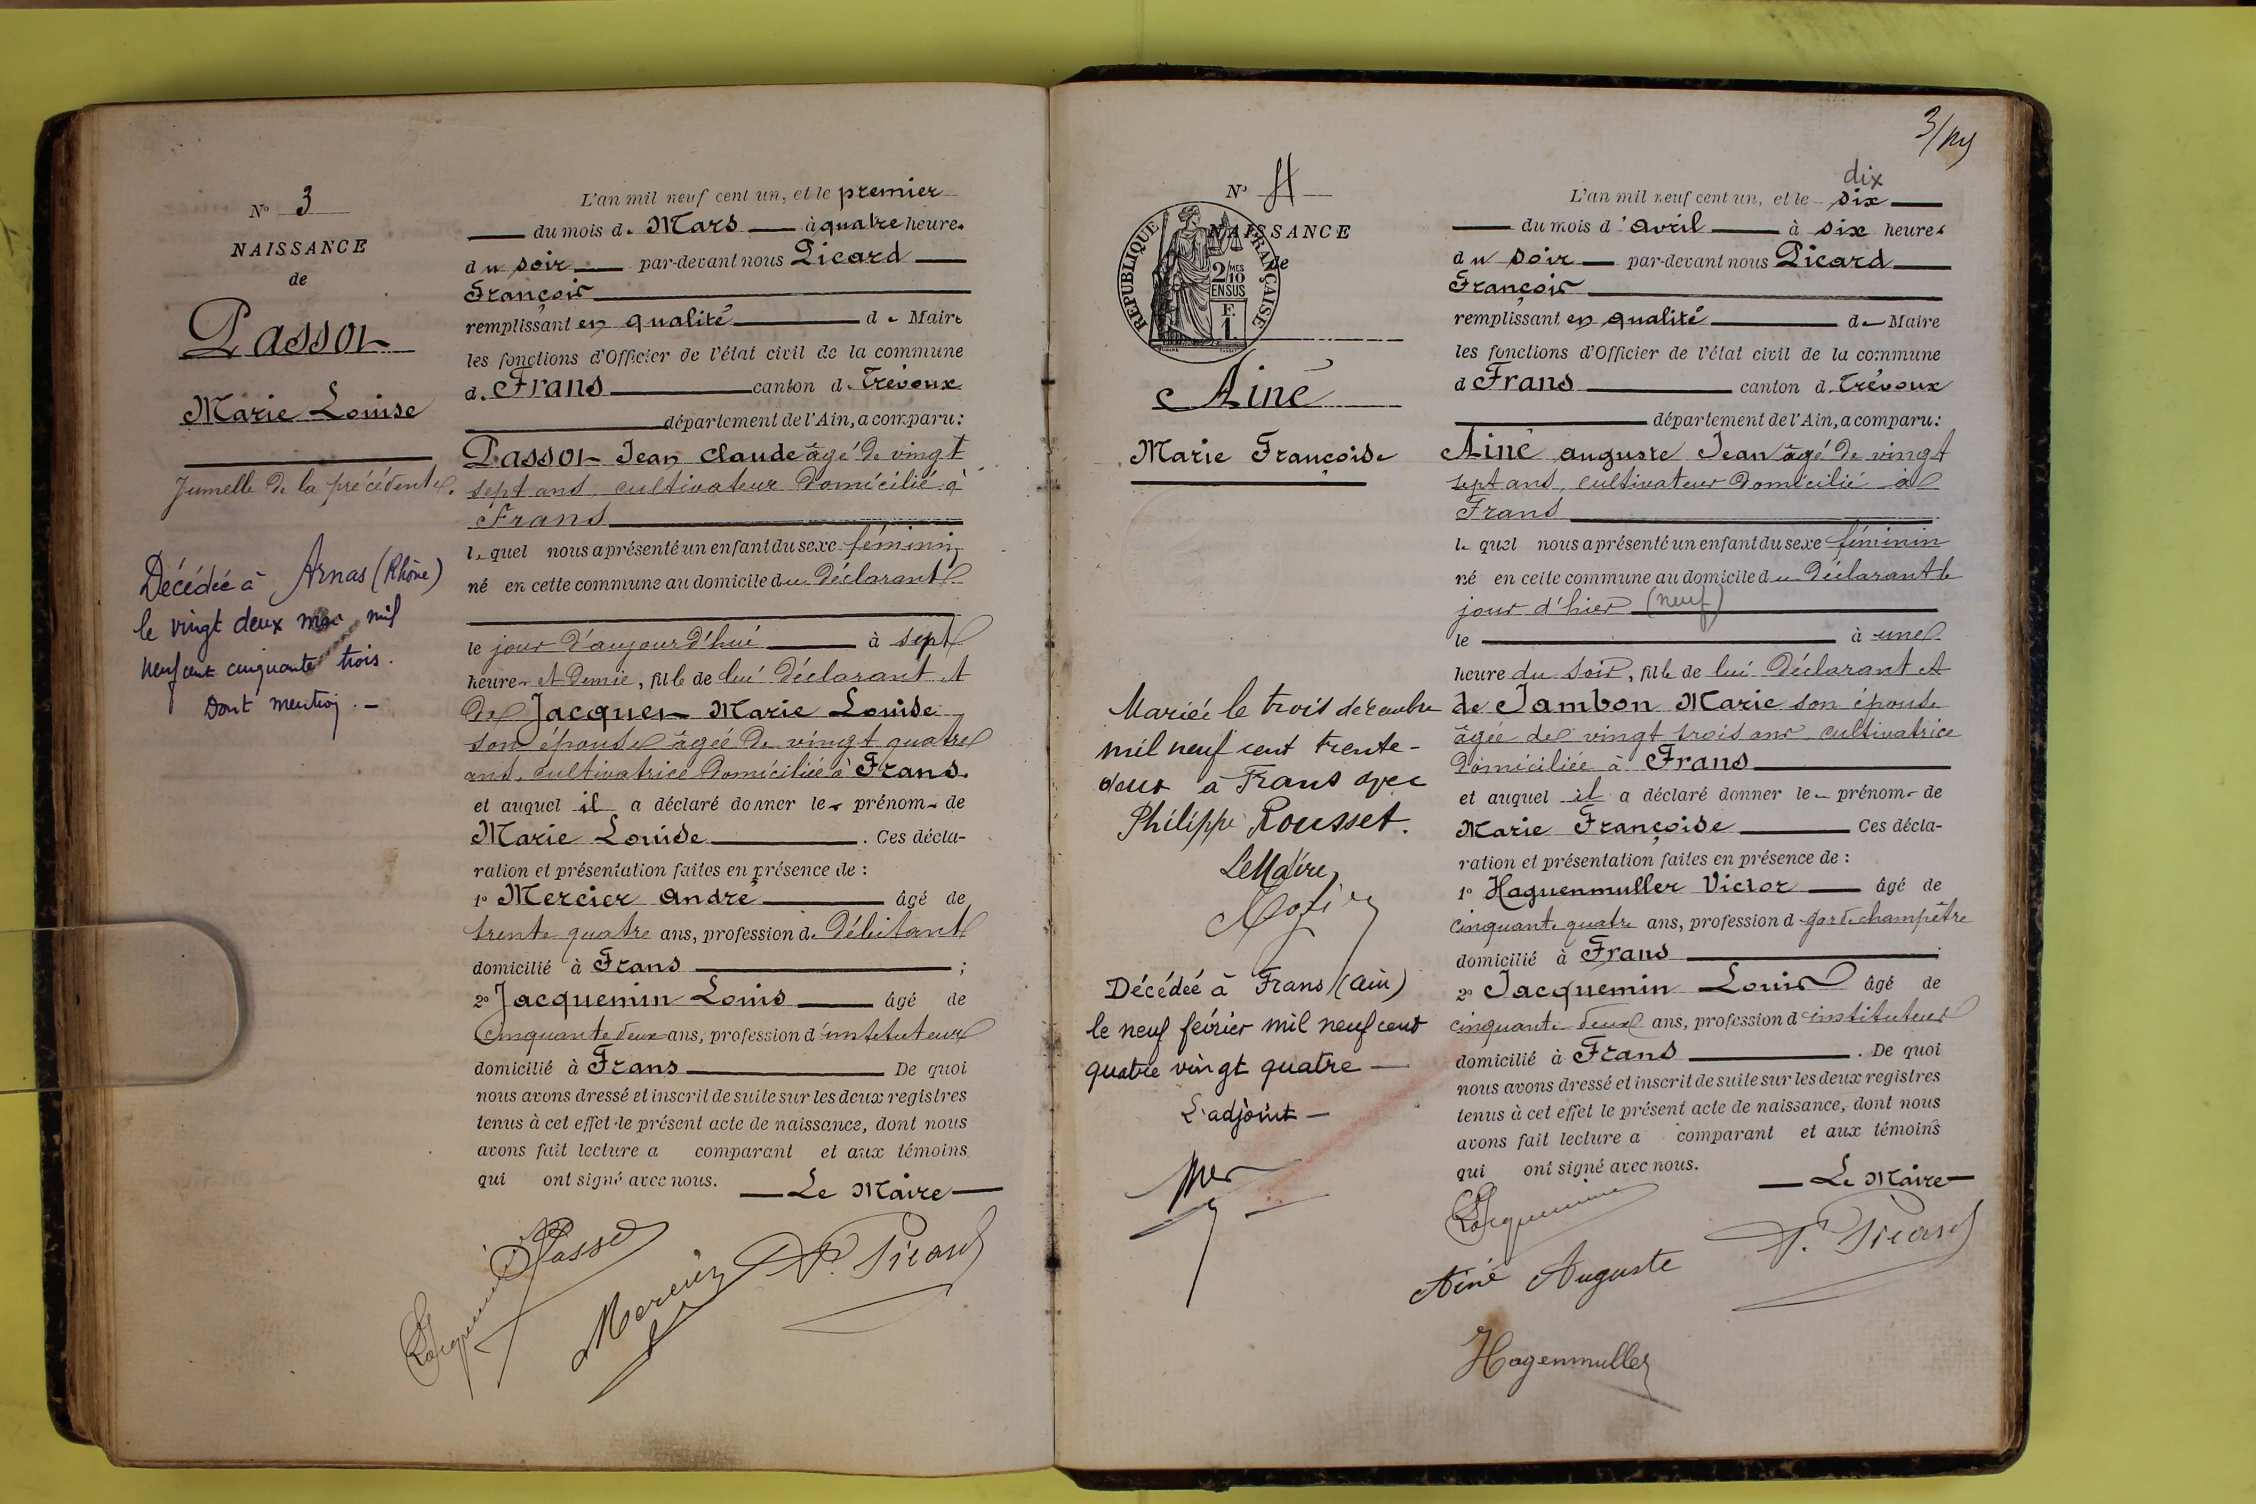 N° 3
NAISSANCE
de
Passot
Marie Louise
Jumelle de la précédente.
Décédée à Arnas (Rhône)
le vingt deux mai mil
neuf cent cinquante trois.
Dont mention. —
L'an mil neuf cent un, et le premier
du mois de Mars à quatre heures
du soir par-devant nous Picard
François
remplissant en qualité de Maire
les fonctions d'Officier de l'état civil de la commune
de Frans canton de Trévoux
département de l'Ain, a comparu :
Passot Jean Claude âgé de vingt
sept ans, cultivateur domicilié à
Frans
lequel nous a présenté un enfant du sexe féminin
né en cette commune au domicile du déclarant
le jour d'aujourd'hui à sept
heures et demie, fille de lui déclarant et
de Jacquet Marie Louise
son épouse âgée de vingt quatre
ans, cultivatrice domiciliée à Frans.
et auquel il a déclaré donner les prénoms de
Marie Louise . Ces décla-
ration et présentation faites en présence de :
1° Mercier André âgé de
trente quatre ans, profession de Débitant
domicilié à Frans ;
2° Jacquemin Louis âgé de
cinquante deux ans, profession d'instituteur
domicilié à Frans De quoi
nous avons dressé et inscrit de suite sur les deux registres
tenus à cet effet le présent acte de naissance, dont nous
avons fait lecture a comparant et aux témoins
qui ont signé avec nous.
— Le Maire —
Passot
Jacquemin
Mercier
F. Picard
N° 4
NAISSANCE
de
RÉPUBLIQUE FRANÇAISE
2/10 MES
EN SUS
F.
1.
Ainé
Marie Françoise
Mariée le trois décembre
mil neuf cent trente-
deux à Frans avec
Philippe Rousset.
Le Maire,
Décédée à Frans (Ain)
le neuf février mil neuf cent
quatre vingt quatre —
L'adjoint —
dix
L'an mil neuf cent un, et le six
du mois d'avril à six heures
du soir par-devant nous Picard
François
remplissant en qualité de Maire
les fonctions d'Officier de l'état civil de la commune
d Frans canton d. Trévoux
département de l'Ain, a comparu :
Ainé Auguste Jean âgé de vingt
sept ans, cultivateur domicilié à
Frans
lequel nous a présenté un enfant du sexe féminin
né en cette commune au domicile du déclarant le
jour d'hier (neuf)
le à une
heure du soir, fille de lui déclarant et
de Jambon Marie son épouse
âgée de vingt trois ans cultivatrice
domiciliée à Frans
et auquel il a déclaré donner les prénoms de
Marie Françoise Ces décla-
ration et présentation faites en présence de :
1° Haguenmuller Victor âgé de
cinquante quatre ans, profession d garde champêtre
domicilié à Frans ;
2° Jacquemin Louis âgé de
cinquante deux ans, profession d'instituteur
domicilié à Frans . De quoi
nous avons dressé et inscrit de suite sur les deux registres
tenus à cet effet le présent acte de naissance, dont nous
avons fait lecture a comparant et aux témoins
qui ont signé avec nous.
— Le Maire —
Jacquemin
F. Picard
Ainé Auguste
Hagenmuller